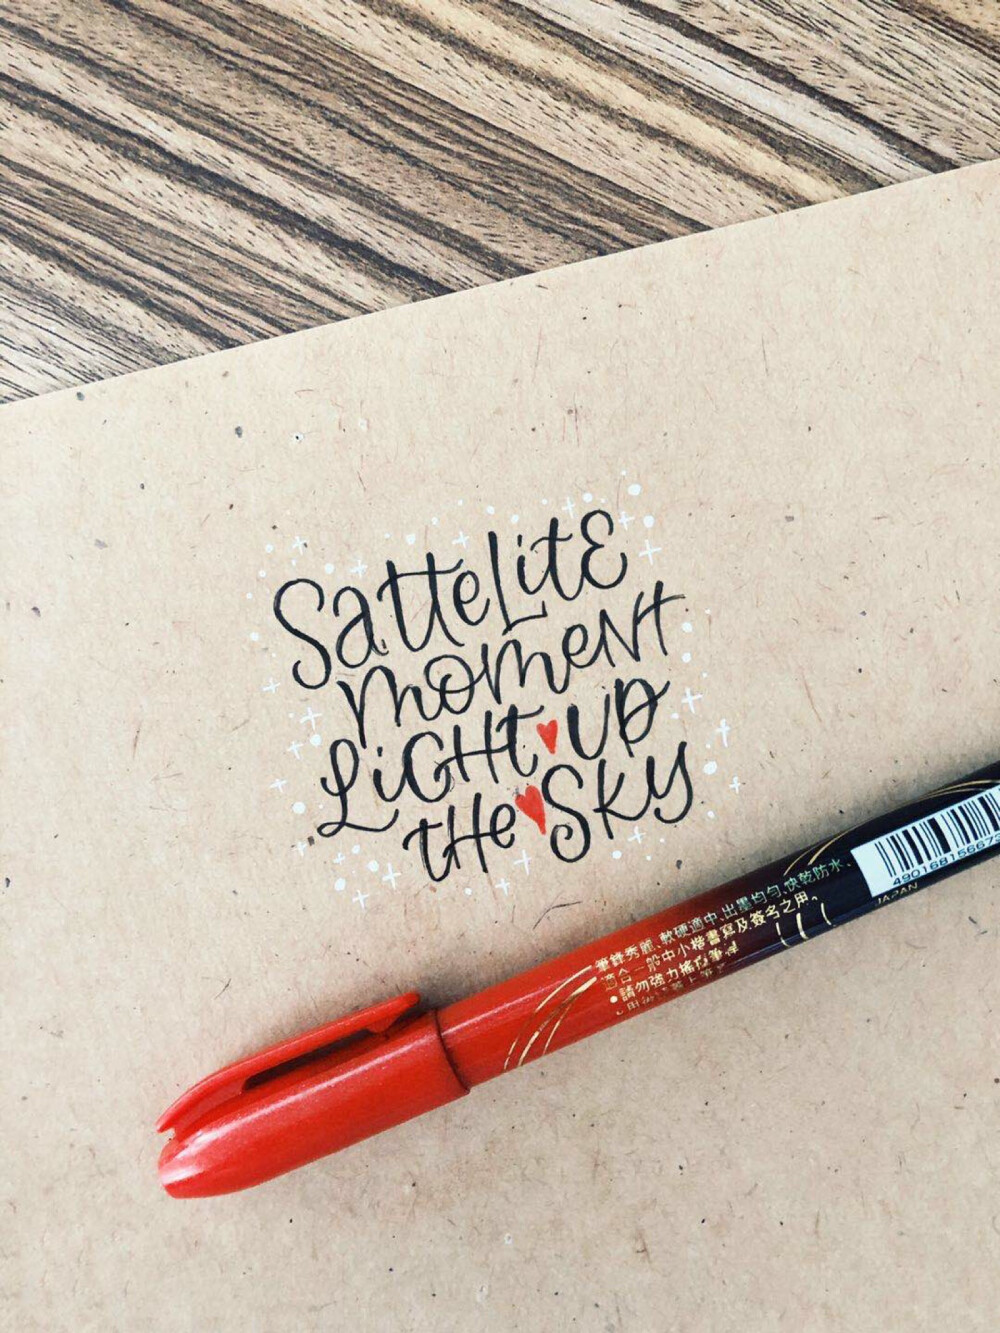 Sattelite
moment
Light up
the Sky
筆鋒秀麗、軟硬適中、出墨均勻、快乾防水、
適合一般中小楷書寫及簽名之用。
●請勿強力搖
4901681566
JAPAN